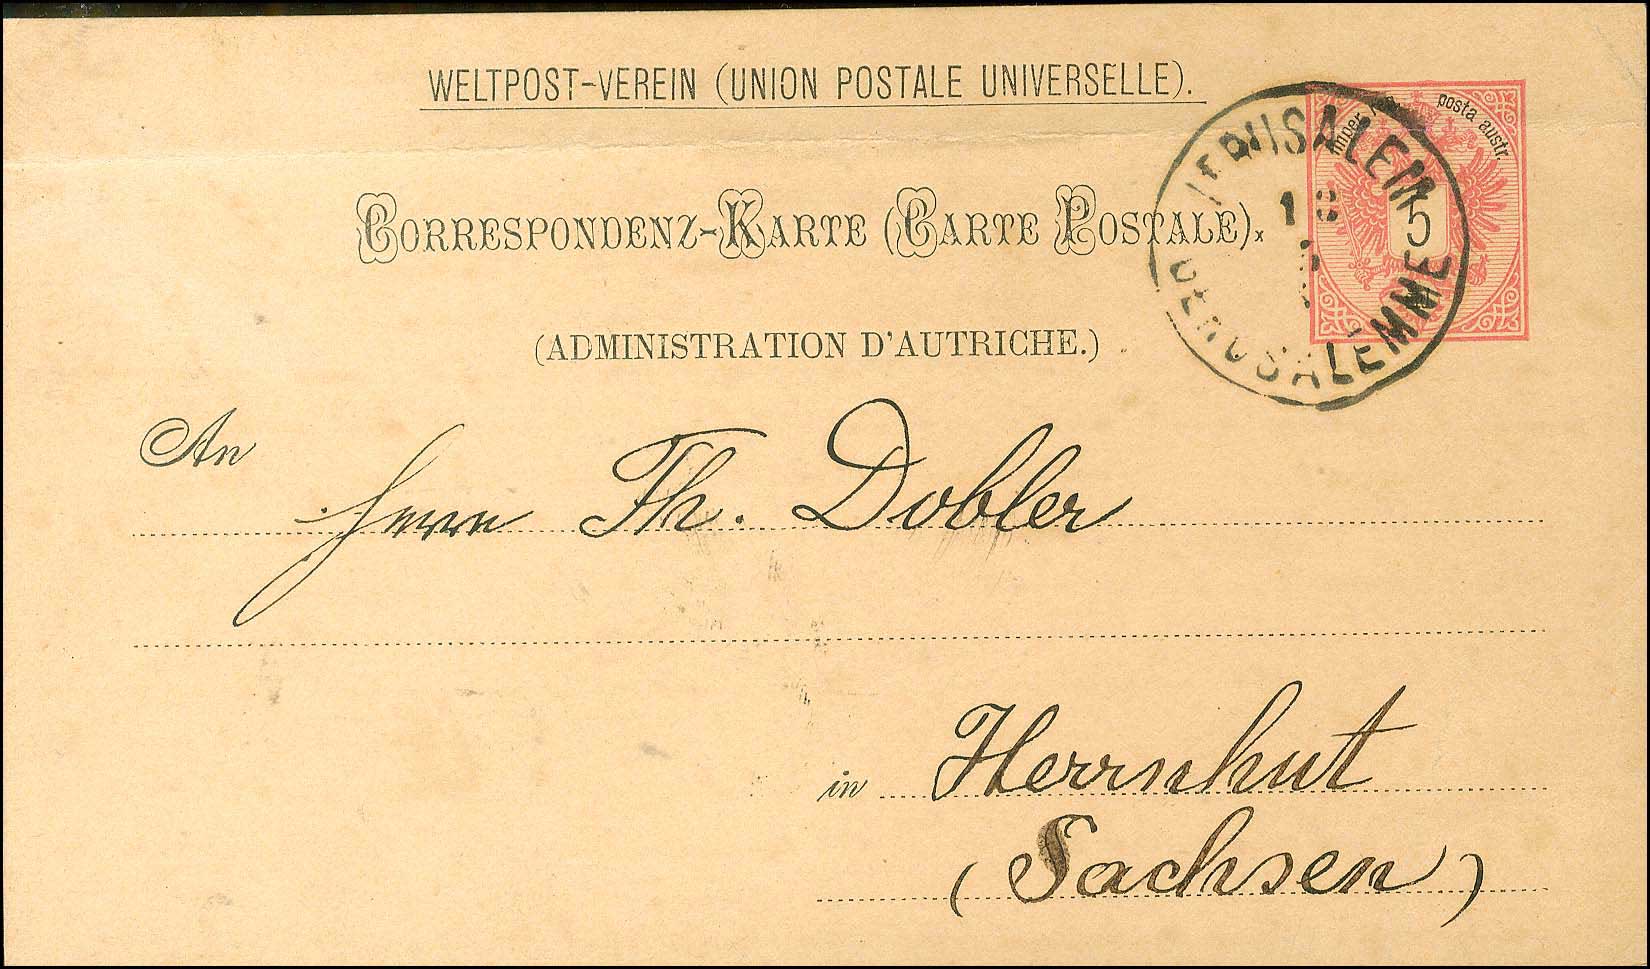 WELTPOST-VEREIN (UNION POSTALE UNIVERSELLE).
CORRESPONDENZ-KARTE (CARTE POSTALE).
(ADMINISTRATION D'AUTRICHE.)
posta austr.
5
JERUSALEM
GERUSALEMME
An
Herrn Th. Dobler
in Herrnhut
(Sachsen)